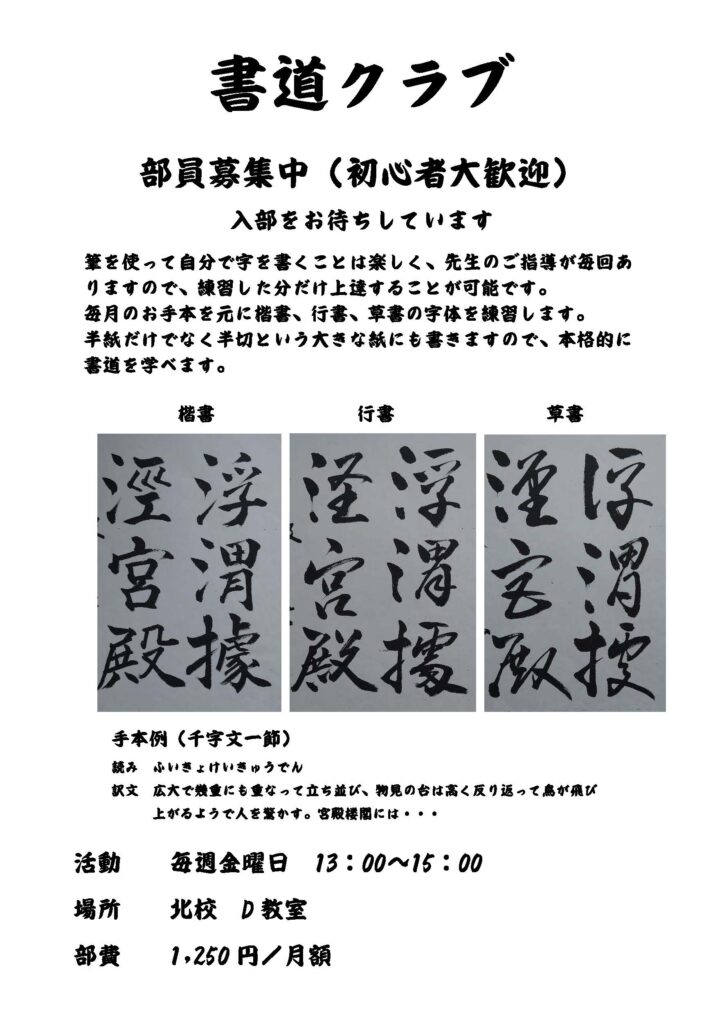 書道クラブ
部員募集中（初心者大歓迎）
入部をお待ちしています
筆を使って自分で字を書くことは楽しく、先生のご指導が毎回あ
りますので、練習した分だけ上達することが可能です。
毎月のお手本を元に楷書、行書、草書の字体を練習します。
半紙だけでなく半切という大きな紙にも書きますので、本格的に
書道を学べます。
楷書
浮渭據
涇宮殿
行書
浮渭據
涇宮殿
草書
浮渭據
涇宮殿
手本例（千字文一節）
読み　ふいきょけいきゅうでん
訳文　広大で幾重にも重なって立ち並び、物見の台は高く反り返って鳥が飛び
上がるようで人を驚かす。宮殿楼閣には・・・
活動　毎週金曜日　13：00～15：00
場所　北校　D教室
部費　1,250円／月額